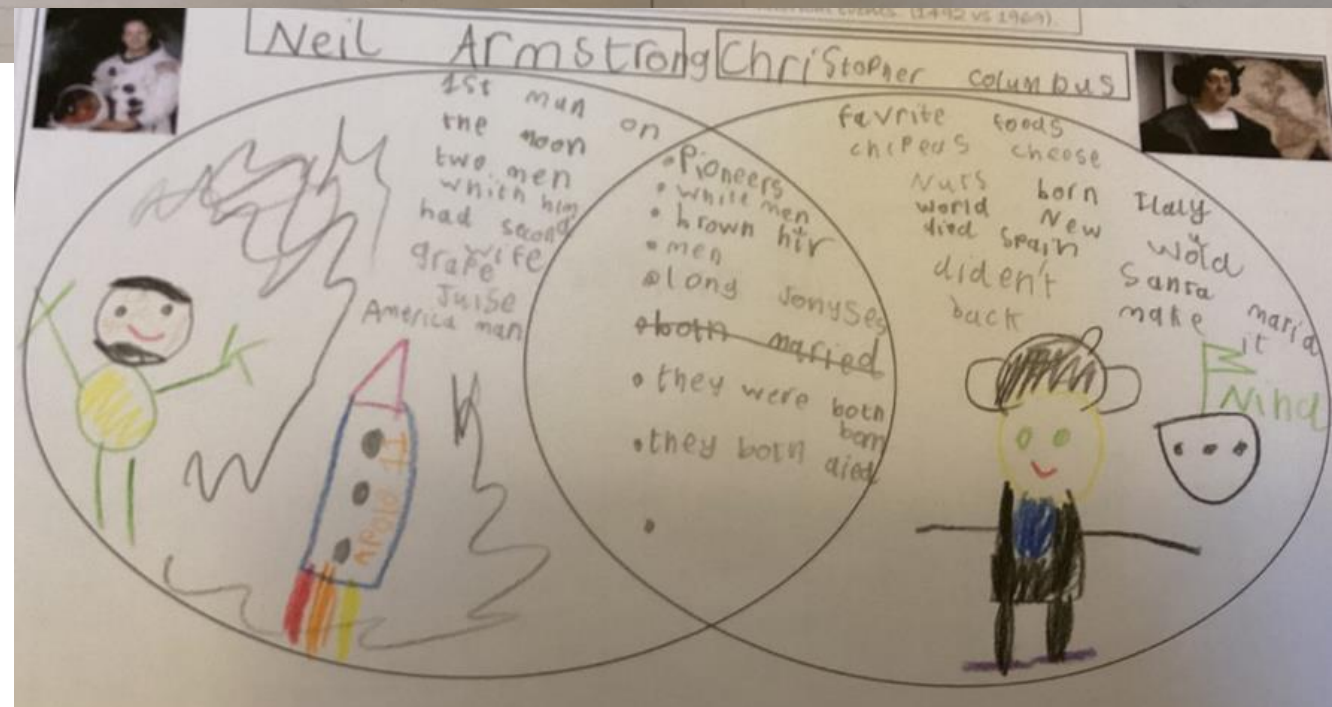 (1492 vs 1969).
Neil Armstrong
Christopher columbus
1st man on
the moon
two men
whith him
had second
wife
grape
Juise
America man
APOlO 11
• Pioneers
• white men
• brown hir
• men
• long Jonyses
• both maried
• they were both
born
• they both died
•
favrite foods
chipeas cheese
Nuts born Italy
world New wold
died Spain Santa maria
dident make it
back
Nina